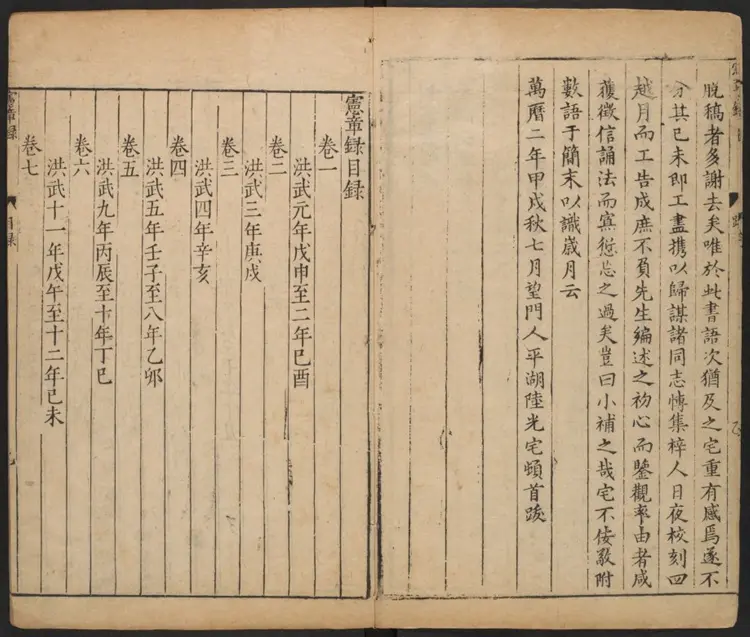 脫稿者多謝去矣唯於此書語次猶及之宅重有感焉遂不
分其已未即工盡携以歸謀諸同志愽集梓人日夜校刻四
越月而工告成庶不負先生編述之初心而鑒觀率由者咸
獲徵信誦法而寡愆忘之過矣豈曰小補之哉宅不佞敬附
數語于簡末以識歲月云
萬曆二年甲戌秋七月望門人平湖陸光宅頓首跋
憲章録目録
卷一
洪武元年戊申至二年巳酉
卷二
洪武三年庚戌
卷三
洪武四年辛亥
卷四
洪武五年壬子至八年乙卯
卷五
洪武九年丙辰至十年丁巳
卷六
洪武十一年戊午至十二年己未
卷七
憲章録
目録